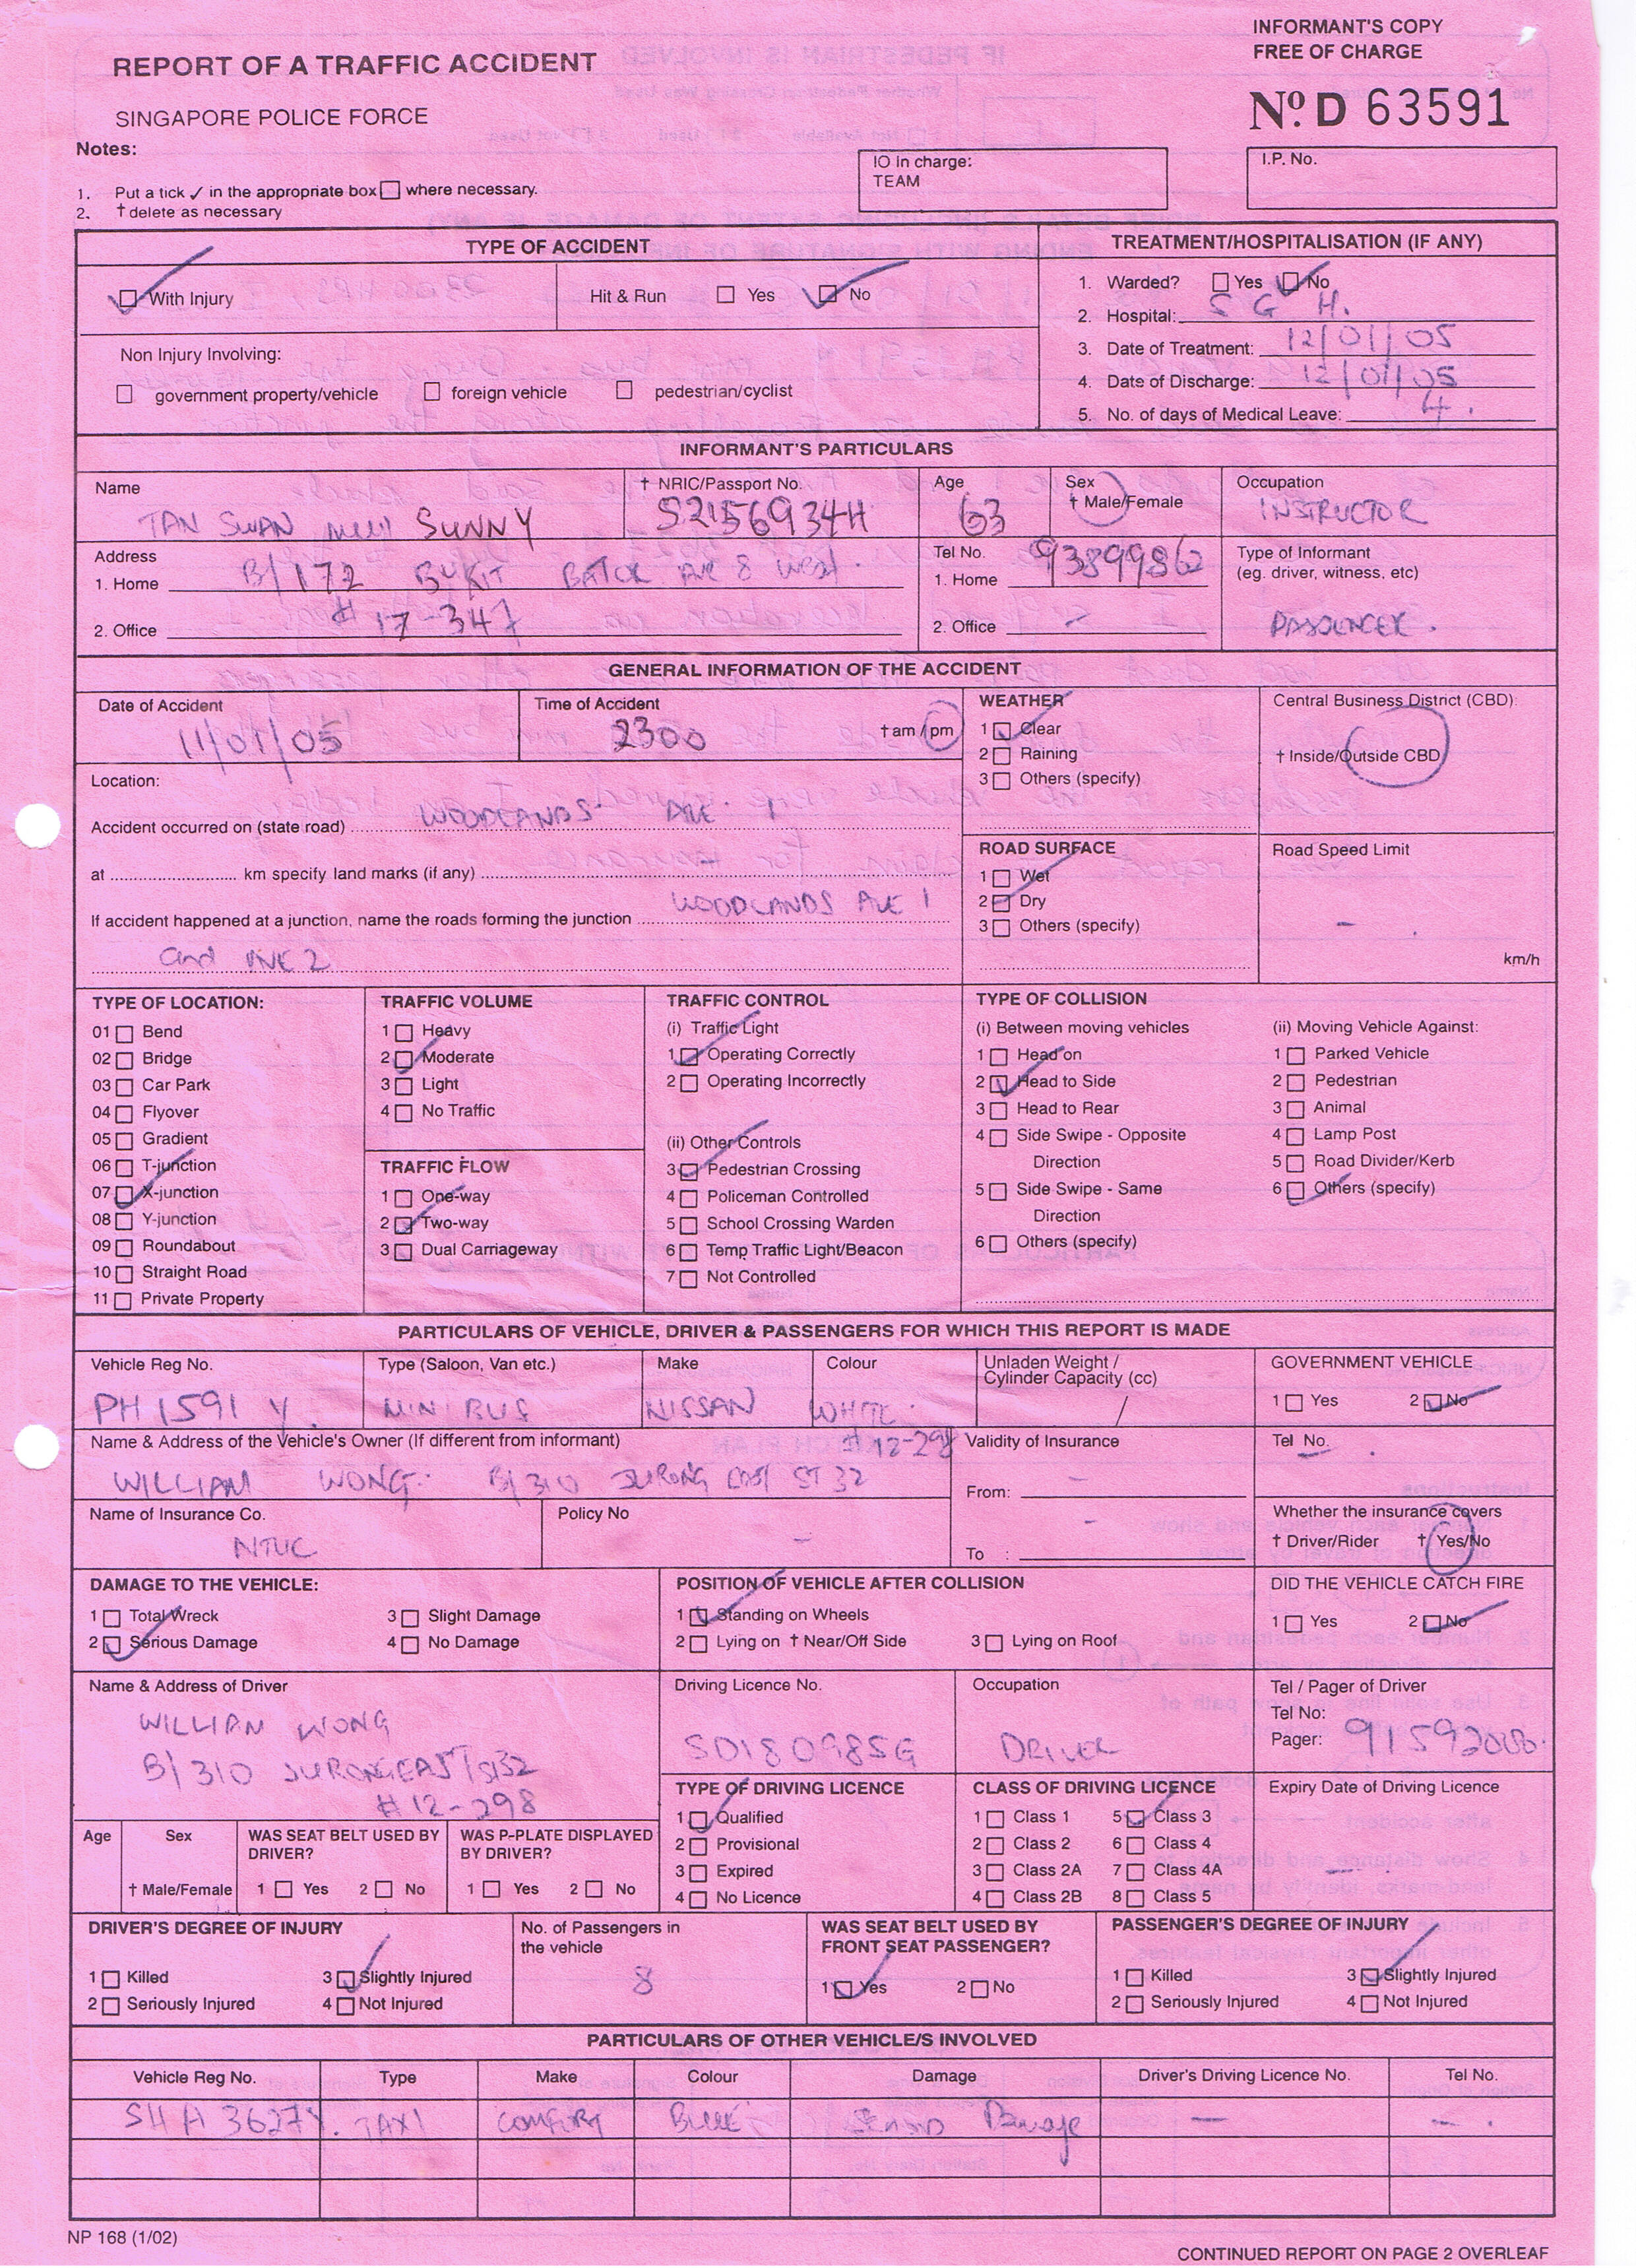 INFORMANT'S COPY
FREE OF CHARGE
REPORT OF A TRAFFIC ACCIDENT
SINGAPORE POLICE FORCE
No. D 63591
Notes:
1. Put a tick ✓ in the appropriate box ☐ where necessary.
2. † delete as necessary
IO In charge:
TEAM
I.P. No.
TYPE OF ACCIDENT
With Injury
Hit & Run Yes No
Non Injury Involving:
government property/vehicle foreign vehicle pedestrian/cyclist
TREATMENT/HOSPITALISATION (IF ANY)
1. Warded? Yes No
2. Hospital: S G H.
3. Date of Treatment: 12/01/05
4. Date of Discharge: 12/01/05
5. No. of days of Medical Leave: 4.
INFORMANT'S PARTICULARS
Name
TAN SWAN SUNNY
† NRIC/Passport No.
S2156934H
Age
63
Sex
† Male/Female
Occupation
INSTRUCTOR
Address
1. Home B/172 BUKIT BATOK AVE 8 WEST.
# 17-347
2. Office
Tel No.
1. Home 93899862
2. Office -
Type of Informant
(eg. driver, witness, etc)
PASSENGER.
GENERAL INFORMATION OF THE ACCIDENT
Date of Accident
11/01/05
Time of Accident
2300 † am / pm
Location:
Accident occurred on (state road) WOODLANDS AVE 1
at km specify land marks (if any)
If accident happened at a junction, name the roads forming the junction WOODLANDS AVE 1
and AVE 2
WEATHER
1 Clear
2 Raining
3 Others (specify)
Central Business District (CBD):
† Inside/Outside CBD
ROAD SURFACE
1 Wet
2 Dry
3 Others (specify)
Road Speed Limit
- .
km/h
TYPE OF LOCATION:
01 Bend
02 Bridge
03 Car Park
04 Flyover
05 Gradient
06 T-junction
07 X-junction
08 Y-junction
09 Roundabout
10 Straight Road
11 Private Property
TRAFFIC VOLUME
1 Heavy
2 Moderate
3 Light
4 No Traffic
TRAFFIC FLOW
1 One-way
2 Two-way
3 Dual Carriageway
TRAFFIC CONTROL
(i) Traffic Light
1 Operating Correctly
2 Operating Incorrectly
(ii) Other Controls
3 Pedestrian Crossing
4 Policeman Controlled
5 School Crossing Warden
6 Temp Traffic Light/Beacon
7 Not Controlled
TYPE OF COLLISION
(i) Between moving vehicles
1 Head on
2 Head to Side
3 Head to Rear
4 Side Swipe - Opposite
Direction
5 Side Swipe - Same
Direction
6 Others (specify)
(ii) Moving Vehicle Against:
1 Parked Vehicle
2 Pedestrian
3 Animal
4 Lamp Post
5 Road Divider/Kerb
6 Others (specify)
PARTICULARS OF VEHICLE, DRIVER & PASSENGERS FOR WHICH THIS REPORT IS MADE
Vehicle Reg No.
PH 1591 Y.
Type (Saloon, Van etc.)
MINI BUS
Make
NISSAN
Colour
WHITE.
Unladen Weight /
Cylinder Capacity (cc)
/
GOVERNMENT VEHICLE
1 Yes 2 No
Name & Address of the Vehicle's Owner (If different from informant) # 12-298
WILLIAM WONG. B/310 JURONG EAST ST 32
Validity of Insurance
-
From:
-
To :
Tel No.
-
Name of Insurance Co.
NTUC
Policy No
-
Whether the insurance covers
† Driver/Rider † Yes/No
DAMAGE TO THE VEHICLE:
1 Total Wreck
2 Serious Damage
3 Slight Damage
4 No Damage
POSITION OF VEHICLE AFTER COLLISION
1 Standing on Wheels
2 Lying on † Near/Off Side 3 Lying on Roof
DID THE VEHICLE CATCH FIRE
1 Yes 2 No
Name & Address of Driver
WILLIAM WONG
B/310 JURONG EAST ST32
# 12-298
Driving Licence No.
S0180985G
Occupation
DRIVER
Tel / Pager of Driver
Tel No:
Pager: 91592000.
Age
Sex
† Male/Female
WAS SEAT BELT USED BY
DRIVER?
1 Yes 2 No
WAS P-PLATE DISPLAYED
BY DRIVER?
1 Yes 2 No
TYPE OF DRIVING LICENCE
1 Qualified
2 Provisional
3 Expired
4 No Licence
CLASS OF DRIVING LICENCE
1 Class 1 5 Class 3
2 Class 2 6 Class 4
3 Class 2A 7 Class 4A
4 Class 2B 8 Class 5
Expiry Date of Driving Licence
-
DRIVER'S DEGREE OF INJURY
1 Killed 3 Slightly Injured
2 Seriously Injured 4 Not Injured
No. of Passengers in
the vehicle
8
WAS SEAT BELT USED BY
FRONT SEAT PASSENGER?
1 Yes 2 No
PASSENGER'S DEGREE OF INJURY
1 Killed 3 Slightly Injured
2 Seriously Injured 4 Not Injured
PARTICULARS OF OTHER VEHICLE/S INVOLVED
Vehicle Reg No. Type Make Colour Damage Driver's Driving Licence No. Tel No.
SHA 3627Y. TAXI COMFORT BLUE Damage - - .
NP 168 (1/02)
CONTINUED REPORT ON PAGE 2 OVERLEAF